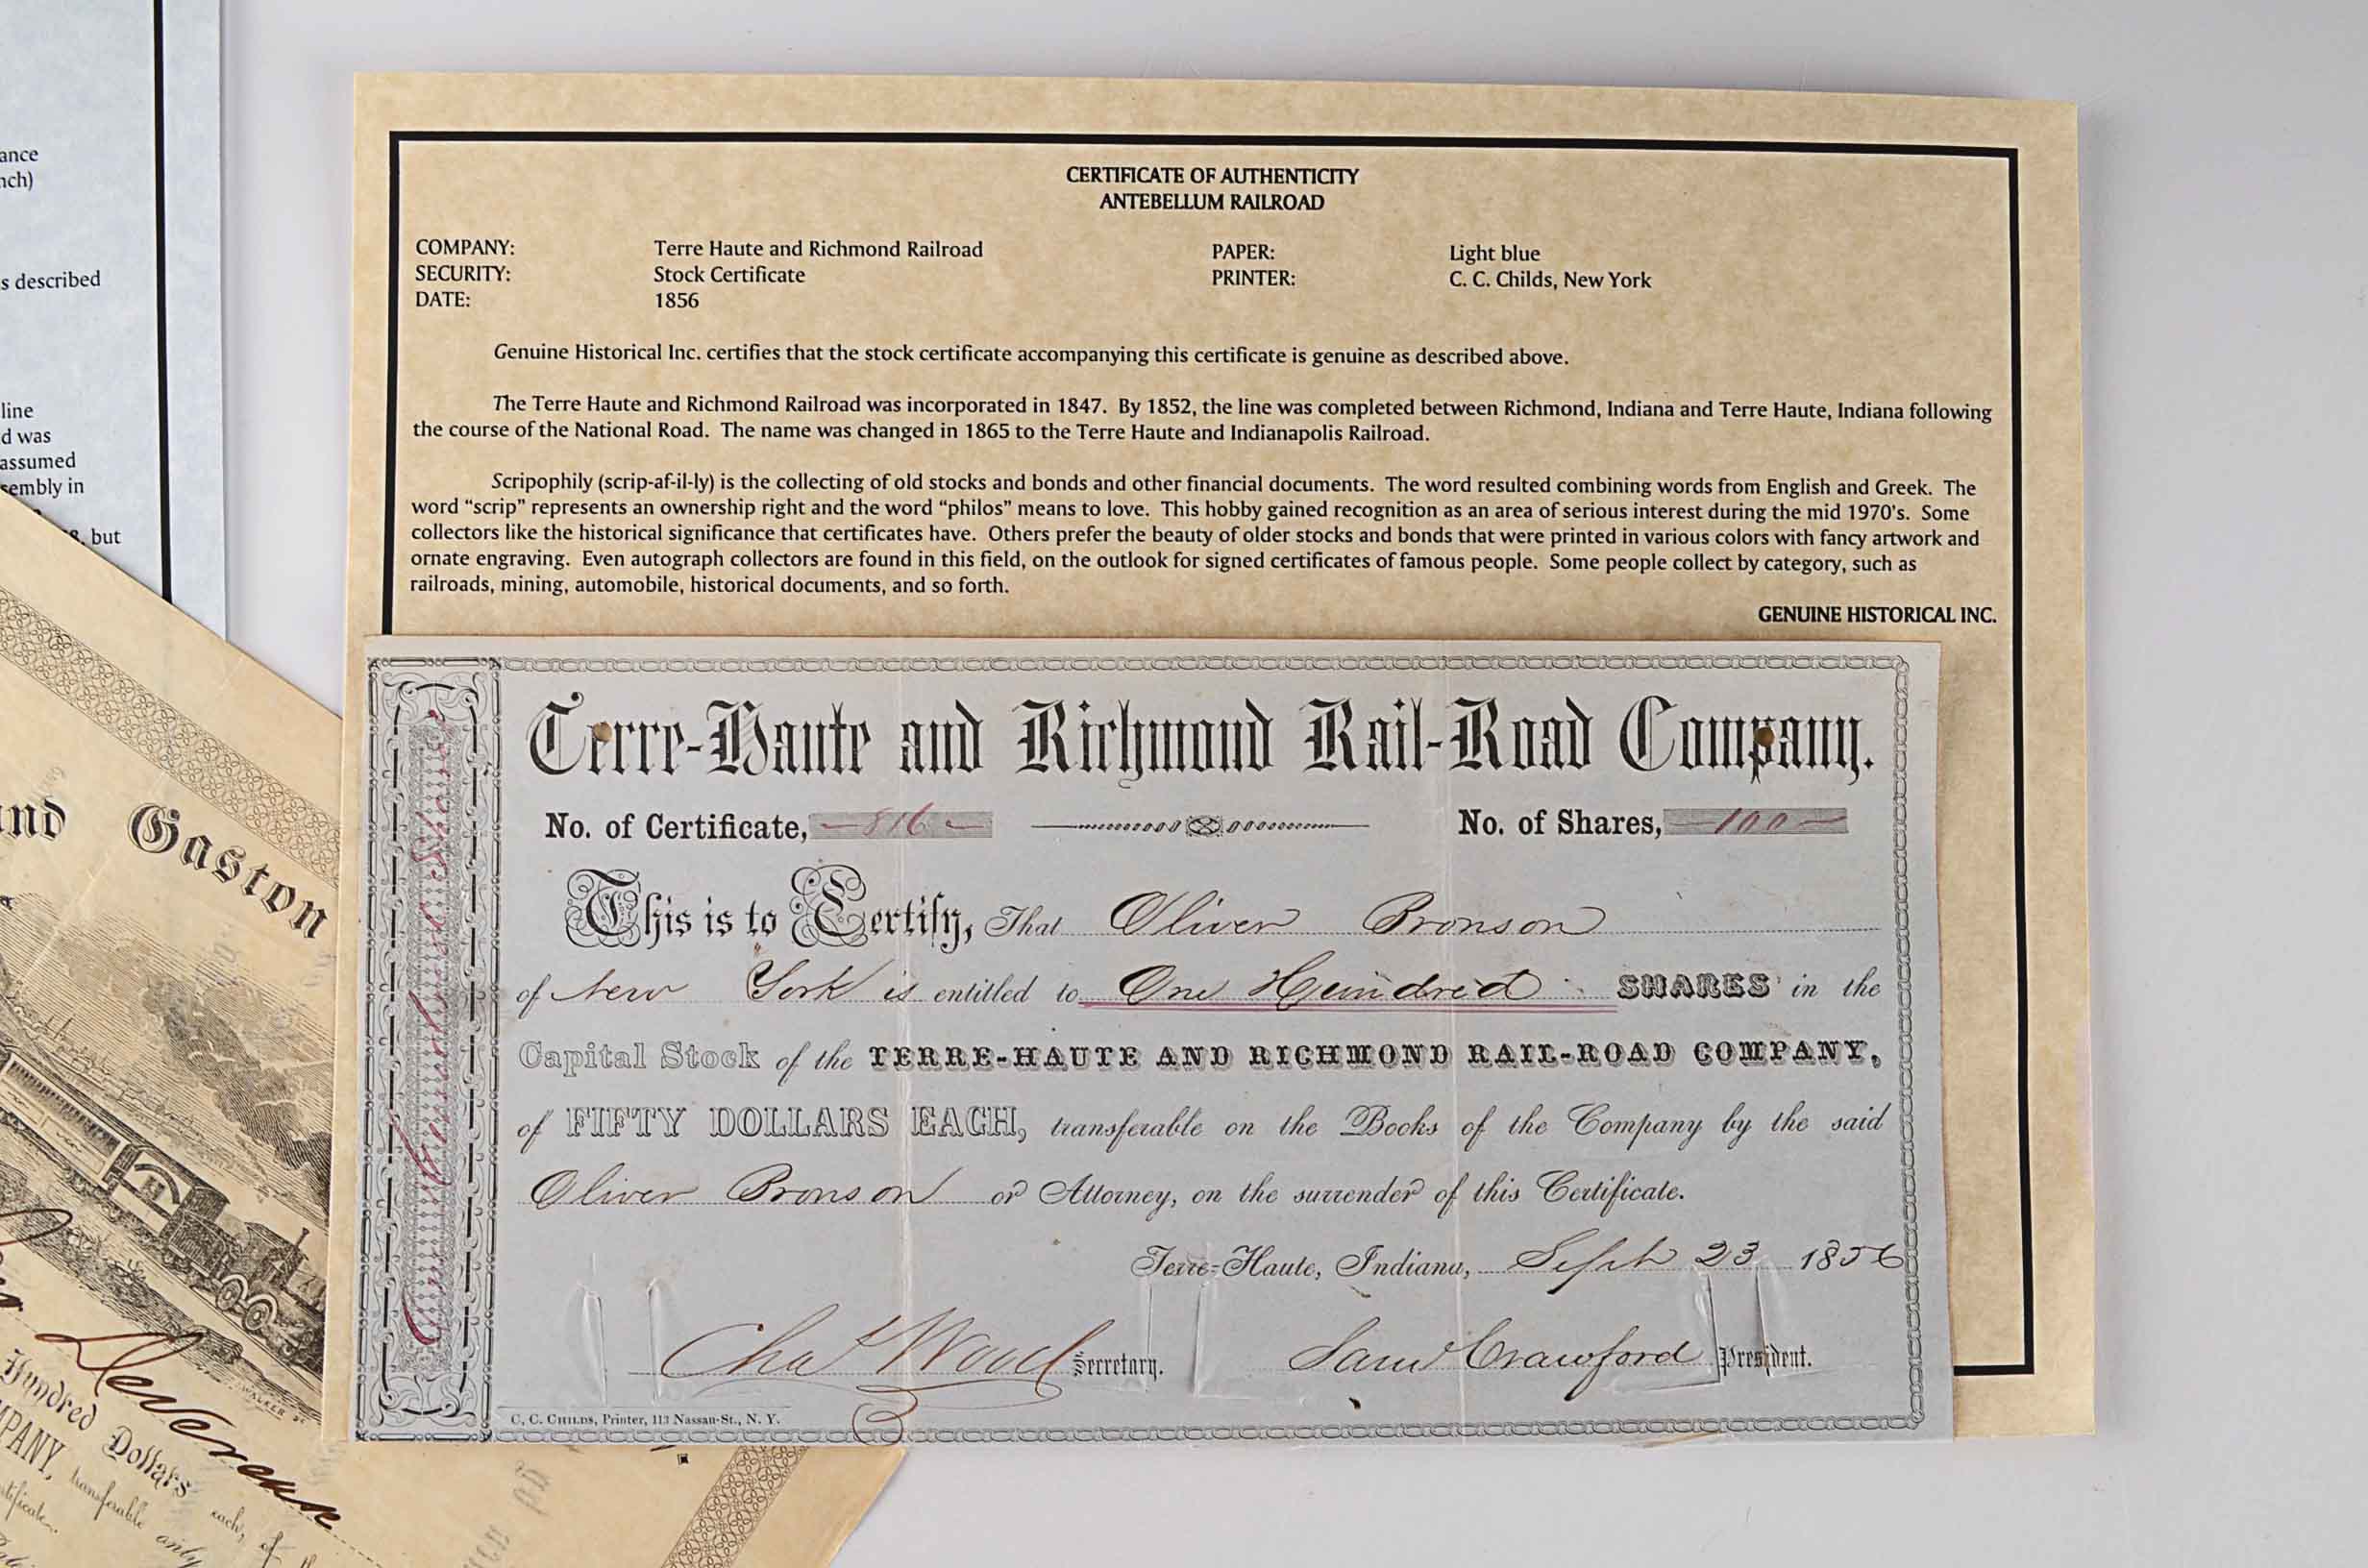 ance
nch)
s described
line
d was
assumed
sembly in
, but
CERTIFICATE OF AUTHENTICITY
ANTEBELLUM RAILROAD
COMPANY: Terre Haute and Richmond Railroad PAPER: Light blue
SECURITY: Stock Certificate PRINTER: C. C. Childs, New York
DATE: 1856
Genuine Historical Inc. certifies that the stock certificate accompanying this certificate is genuine as described above.
The Terre Haute and Richmond Railroad was incorporated in 1847. By 1852, the line was completed between Richmond, Indiana and Terre Haute, Indiana following
the course of the National Road. The name was changed in 1865 to the Terre Haute and Indianapolis Railroad.
Scripophily (scrip-af-il-ly) is the collecting of old stocks and bonds and other financial documents. The word resulted combining words from English and Greek. The
word “scrip” represents an ownership right and the word “philos” means to love. This hobby gained recognition as an area of serious interest during the mid 1970's. Some
collectors like the historical significance that certificates have. Others prefer the beauty of older stocks and bonds that were printed in various colors with fancy artwork and
ornate engraving. Even autograph collectors are found in this field, on the outlook for signed certificates of famous people. Some people collect by category, such as
railroads, mining, automobile, historical documents, and so forth.
GENUINE HISTORICAL INC.
Terre-Haute and Richmond Rail-Road Company.
No. of Certificate, 816 No. of Shares, 100
This is to Certify, That Oliver Bronson
of New York is entitled to One Hundred SHARES in the
Capital Stock of the TERRE-HAUTE AND RICHMOND RAIL-ROAD COMPANY,
of FIFTY DOLLARS EACH, transferable on the Books of the Company by the said
Oliver Bronson or Attorney, on the surrender of this Certificate.
Terre-Haute, Indiana, Sept 23 1856
Chas Wood Secretary. Saml Crawford President.
C. C. CHILDS, Printer, 113 Nassau-St., N. Y.
and Gaston
Devereux
Hundred Dollars each, of
MPANY, transferable only